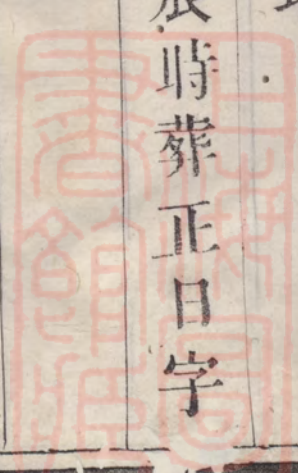 辰時葬正日字